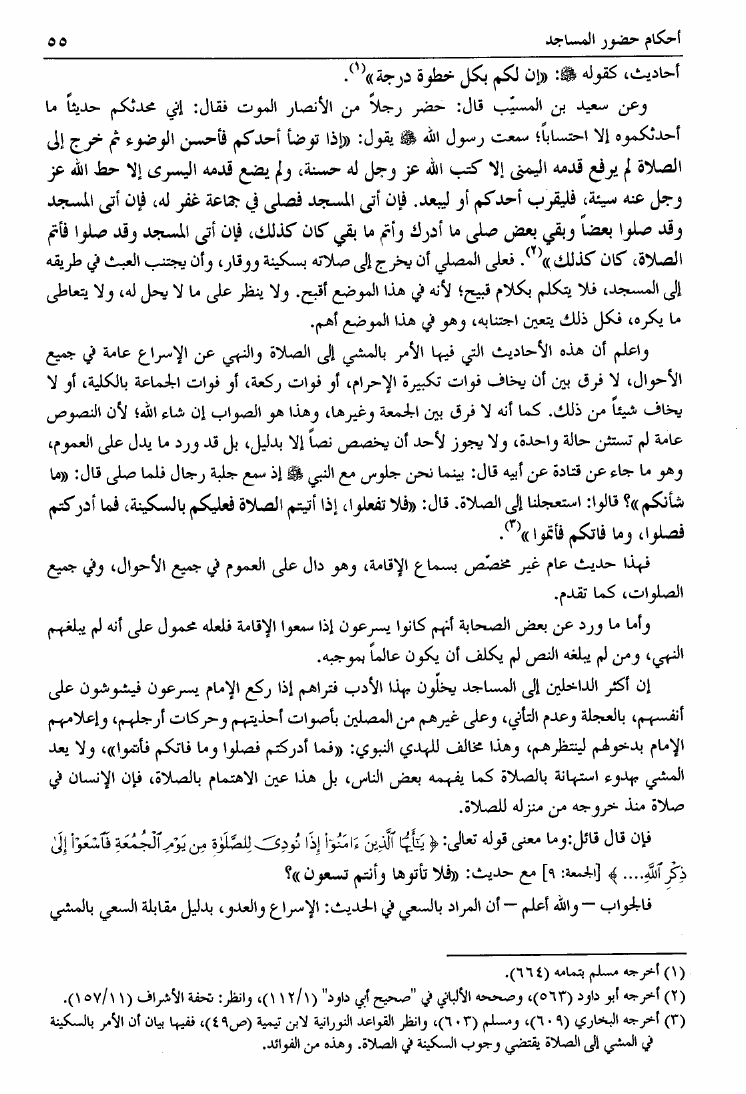 أحكام حضور المساجد ٥٥
أحاديث، كقوله ﷺ: «إن لكم بكل خطوة درجة»(١).
وعن سعيد بن المسيّب قال: حضر رجلاً من الأنصار الموت فقال: إني محدثكم حديثاً ما
أحدثكموه إلا احتساباً؛ سمعت رسول الله ﷺ يقول: «إذا توضأ أحدكم فأحسن الوضوء ثم خرج إلى
الصلاة لم يرفع قدمه اليمنى إلا كتب الله عز وجل له حسنة، ولم يضع قدمه اليسرى إلا حط الله عز
وجل عنه سيئة، فليقرب أحدكم أو ليبعد. فإن أتى المسجد فصلى في جماعة غفر له، فإن أتى المسجد
وقد صلوا بعضاً وبقي بعض صلى ما أدرك وأتم ما بقي كان كذلك، فإن أتى المسجد وقد صلوا فأتم
الصلاة، كان كذلك»(٢). فعلى المصلي أن يخرج إلى صلاته بسكينة ووقار، وأن يجتنب العبث في طريقه
إلى المسجد، فلا يتكلم بكلام قبيح؛ لأنه في هذا الموضع أقبح. ولا ينظر على ما لا يحل له، ولا يتعاطى
ما يكره، فكل ذلك يتعين اجتنابه، وهو في هذا الموضع أهم.
واعلم أن هذه الأحاديث التي فيها الأمر بالمشي إلى الصلاة والنهي عن الإسراع عامة في جميع
الأحوال، لا فرق بين أن يخاف فوات تكبيرة الإحرام، أو فوات ركعة، أو فوات الجماعة بالكلية، أو لا
يخاف شيئاً من ذلك. كما أنه لا فرق بين الجمعة وغيرها، وهذا هو الصواب إن شاء الله؛ لأن النصوص
عامة لم تستثن حالة واحدة، ولا يجوز لأحد أن يخصص نصاً إلا بدليل، بل قد ورد ما يدل على العموم،
وهو ما جاء عن قتادة عن أبيه قال: بينما نحن جلوس مع النبي ﷺ إذ سمع جلبة رجال فلما صلى قال: «ما
شأنكم»؟ قالوا: استعجلنا إلى الصلاة. قال: «فلا تفعلوا، إذا أتيتم الصلاة فعليكم بالسكينة، فما أدركتم
فصلوا، وما فاتكم فأتموا»(٣).
فهذا حديث عام غير مخصّص بسماع الإقامة، وهو دال على العموم في جميع الأحوال، وفي جميع
الصلوات، كما تقدم.
وأما ما ورد عن بعض الصحابة أنهم كانوا يسرعون إذا سمعوا الإقامة فلعله محمول على أنه لم يبلغهم
النهي، ومن لم يبلغه النص لم يكلف أن يكون عالماً بموجبه.
إن أكثر الداخلين إلى المساجد يخلّون بهذا الأدب فتراهم إذا ركع الإمام يسرعون فيشوشون على
أنفسهم، بالعجلة وعدم التأني، وعلى غيرهم من المصلين بأصوات أحذيتهم وحركات أرجلهم، وإعلامهم
الإمام بدخولهم لينتظرهم، وهذا مخالف للهدي النبوي: «فما أدركتم فصلوا وما فاتكم فأتموا»، ولا يعد
المشي بهدوء استهانة بالصلاة كما يفهمه بعض الناس، بل هذا عين الاهتمام بالصلاة، فإن الإنسان في
صلاة منذ خروجه من منزله للصلاة.
فإن قال قائل: وما معنى قوله تعالى: ﴿ يَٰٓأَيُّهَا ٱلَّذِينَ ءَامَنُوٓا۟ إِذَا نُودِىَ لِلصَّلَوٰةِ مِن يَوْمِ ٱلْجُمُعَةِ فَٱسْعَوْا۟ إِلَىٰ
ذِكْرِ ٱللَّهِ.... ﴾ [الجمعة: ٩] مع حديث: «فلا تأتوها وأنتم تسعون»؟
فالجواب – والله أعلم – أن المراد بالسعي في الحديث: الإسراع والعدو، بدليل مقابلة السعي بالمشي
(١) أخرجه مسلم بتمامه (٦٦٤).
(٢) أخرجه أبو داود (٥٦٣)، وصححه الألباني في "صحيح أبي داود" (١/١١٢)، وانظر: تحفة الأشراف (١١/١٥٧).
(٣) أخرجه البخاري (٦٠٩)، ومسلم (٦٠٣)، وانظر القواعد النورانية لابن تيمية (ص٤٩)، ففيها بيان أن الأمر بالسكينة
في المشي إلى الصلاة يقتضي وجوب السكينة في الصلاة. وهذه من الفوائد.